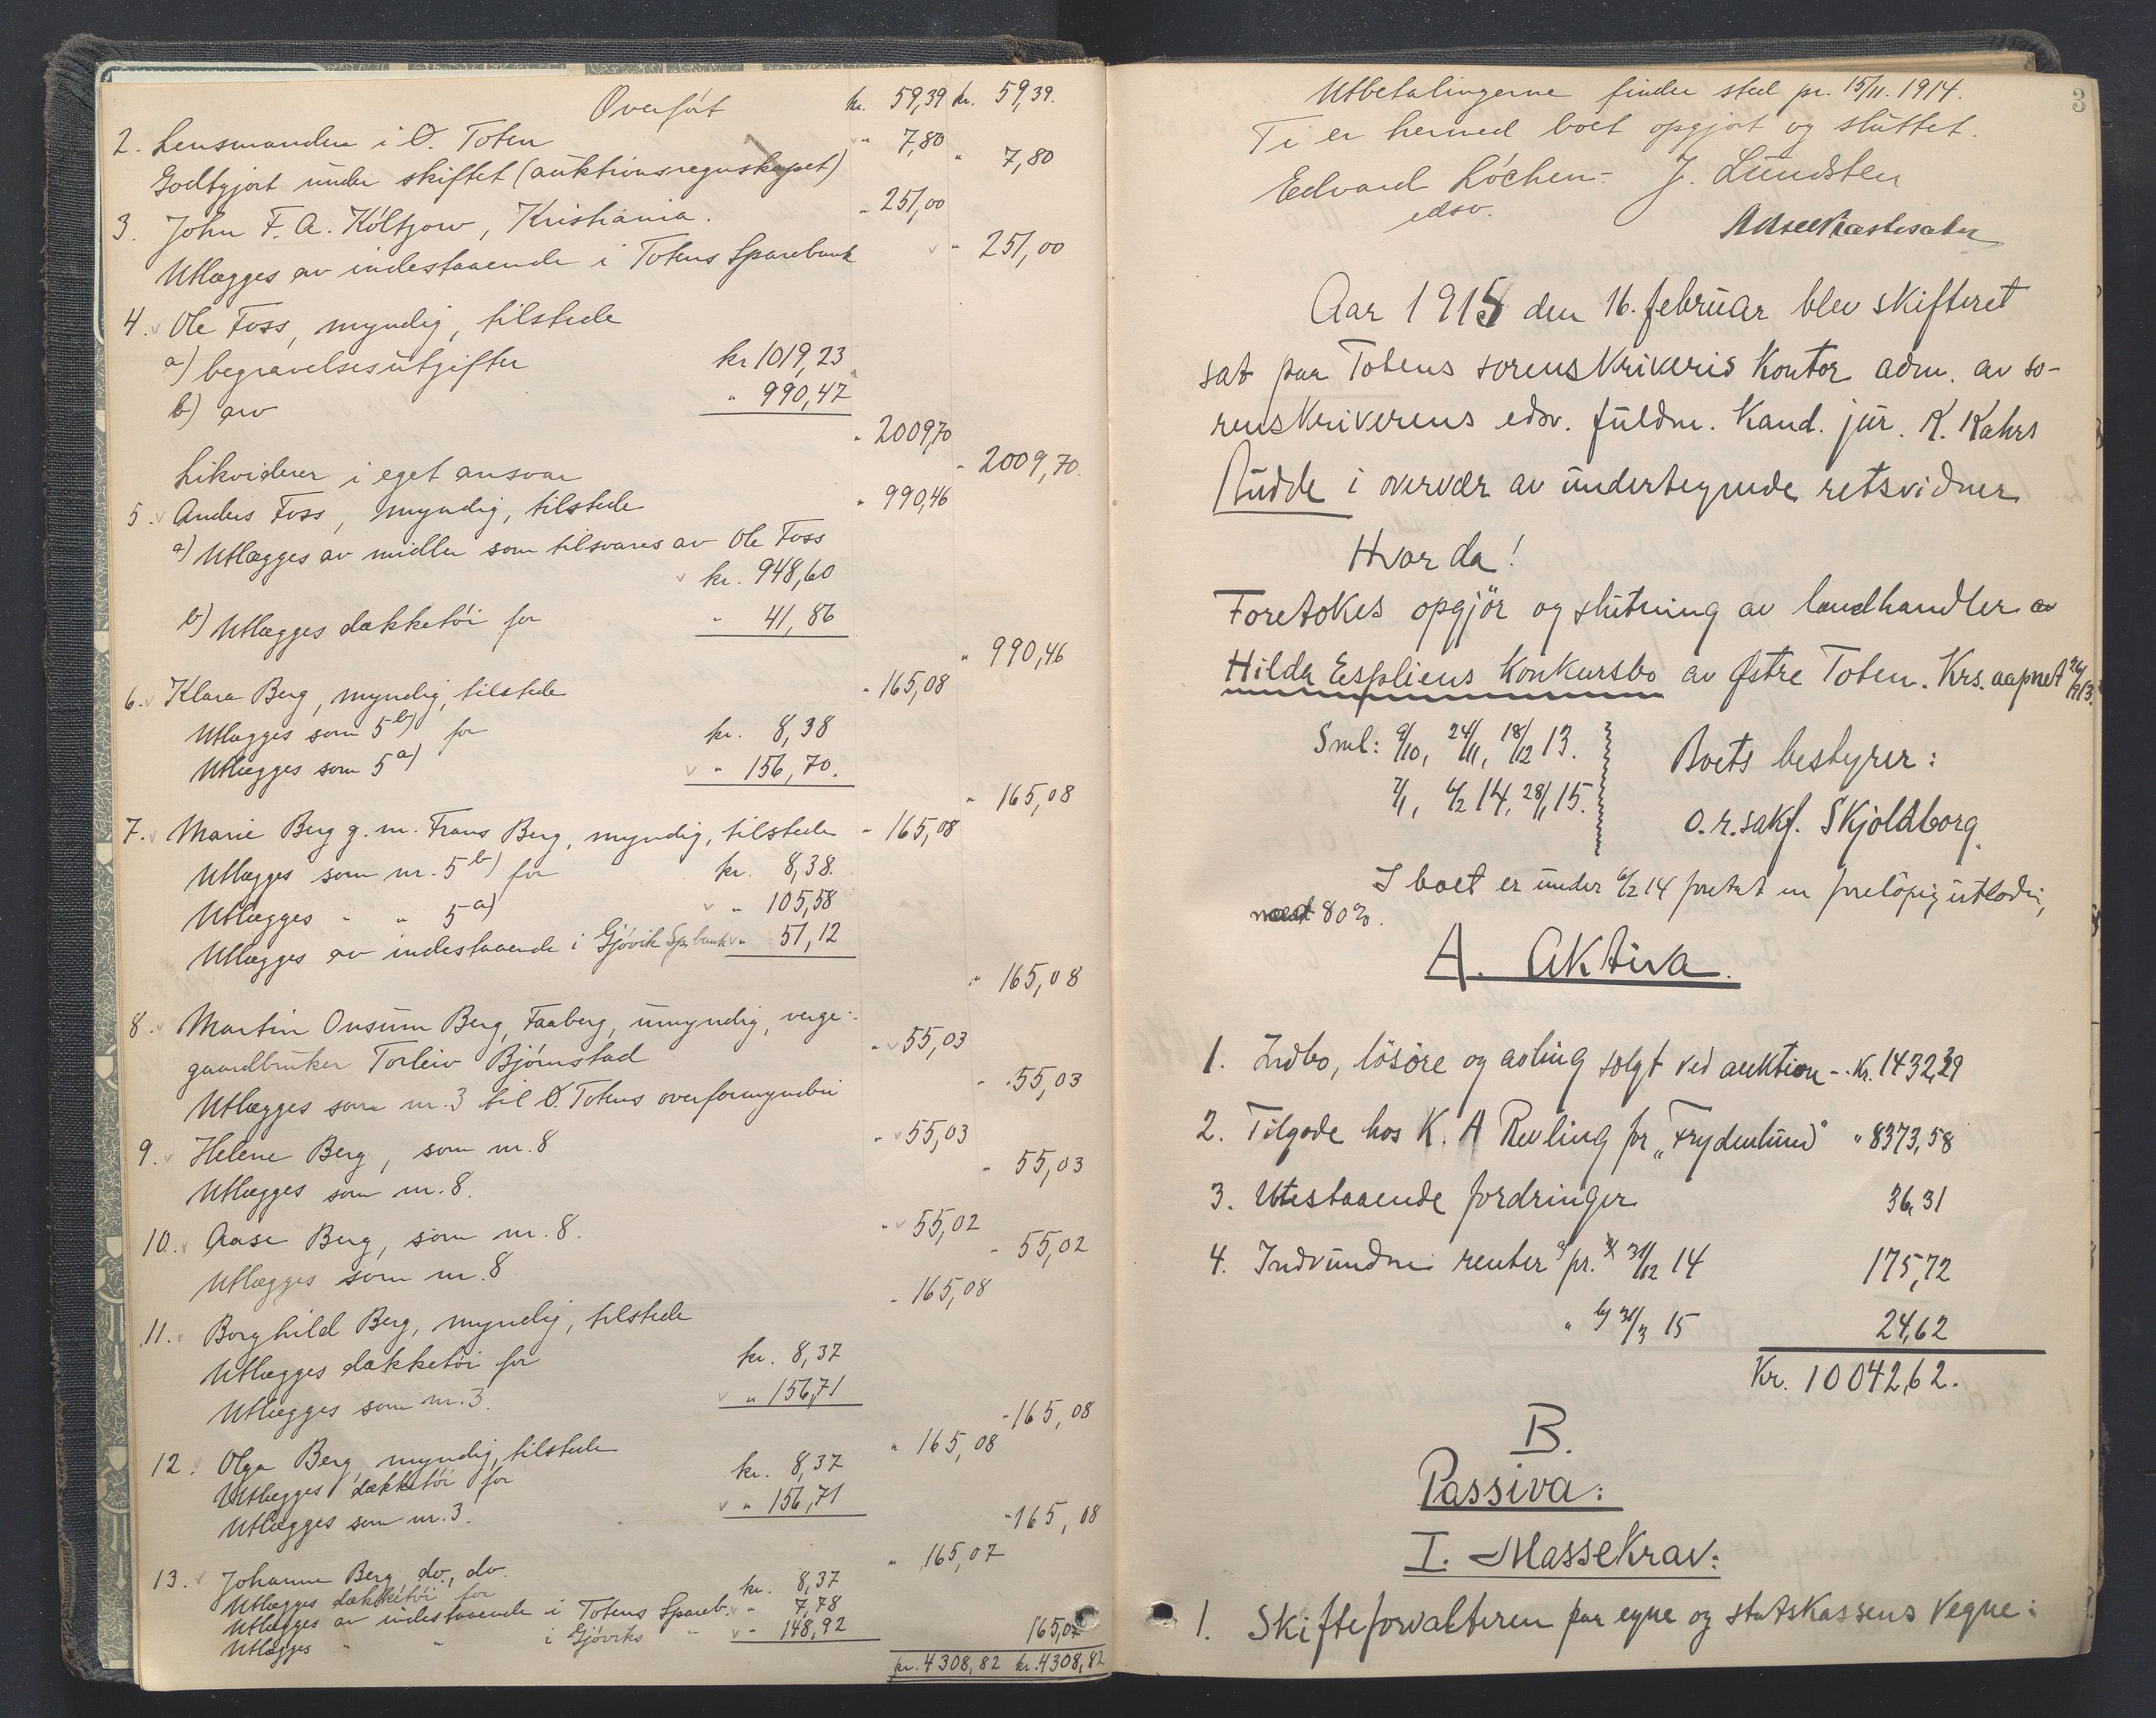 Overført kr. 59,39 kr. 59,39.
2. Lensmanden i Ø. Toten " 7,80
Godtgjort under skiftet (auktionsregnskapet) " 7,80
3. John F. A. Költzow, Kristiania. " 251,00
Utlægges av indestaaende i Totens Sparebank " 251,00
4. Ole Foss, myndig, tilstede
a) begravelsesutgifter kr 1019,23
b) arv " 990,47
" 2009,70
Likviderer i eget ansvar " 2009,70.
5. Anders Foss, myndig, tilstede " 990,46
a) Utlægges av midler som tilsvares av Ole Foss
kr. 948,60
b) Utlægges dækketöi for " 41,86
" 990,46
6. Klara Berg, myndig, tilstede " 165,08
Utlægges som 5 b) for kr. 8,38
Utlægges som 5 a) " 156,70.
" 165,08
7. Marie Berg g. m. Frans Berg, myndig, tilstede " 165,08
Utlægges som nr. 5 b) for kr. 8,38.
Utlægges " " 5 a) " 105,58
Utlægges av indestaaende i Gjövik Sp.bank " 51,12
" 165,08
8. Martin Onsum Berg, Faaberg, umyndig, verge:
gaardbruker Torleiv Bjørnstad " 55,03
Utlægges som nr. 3 til Ø. Totens overformynderi " 55,03
9. Helene Berg, som nr. 8 " 55,03
Utlægges som nr. 8. " 55,03
10. Aase Berg, som nr. 8. " 55,02
Utlægges som nr. 8 " 55,02
11. Borghild Berg, myndig, tilstede " 165,08
Utlægges dækketöi for kr. 8,37
Utlægges som nr. 3. " 156,71
" 165,08
12. Olga Berg, myndig, tilstede " 165,08
Utlægges dækketöi for kr. 8,37
Utlægges som nr. 3. " 156,71
" 165,08
13. Johanne Berg do., do. " 165,07
Utlægges dækketöi for kr. 8,37
Utlægges av indestaaende i Totens Spareb. " 7,78
Utlægges " " i Gjöviks " " 148,92
165,07
kr. 4308,82 kr. 4308,82
3
Utbetalingerne finder sted pr. 15/11. 1914.
Ti er hermed boet opgjort og sluttet.
Edvard Löchen J. Lundsten
edsv.
Aar 1915 den 16. februar blev skifteret
sat paa Totens sorenskriveris kontor adm. av so-
renskriverens edsv. fuldm. kand. jur. K. Kahrs
Budde i overvær av undertegnede retsvidner
Hvor da!
Foretokes opgjör og slutning av landhandler
Hilda Espliens konkursbo av Østre Toten. Krs. aapnet
Sml: 9/10, 24/11, 18/12 13.
7/1, 6/2 14, 28/1 15.
Boets bestyrer:
o.r.sakf. Skjoldborg.
I boet er under 6/2 14 foretat en forelöpig utlodn.,
med 80%.
A. Aktiva.
1. Indbo, lösöre og avling solgt ved auktion - Kr. 1432,39
2. Tilgode hos K. A Revling for "Frydenlund" " 8373,58
3. Utestaaende fordringer 36,31
4. Indvundne renter a) pr. 31/12 14 175,72
" b) 31/3 15 24,62
Kr. 10042,62.
B.
Passiva:
I. Massekrav:
1. Skifteforvalteren paa egne og statskassens vegne: